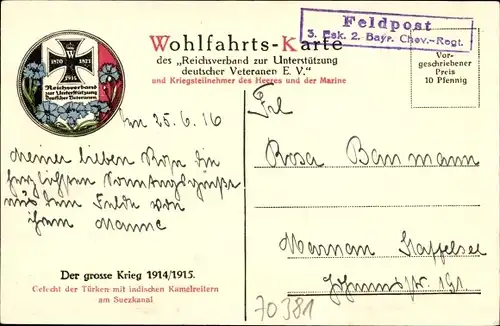 Feldpost
3. Esk. 2. Bayr. Chev.-Regt.
Wohlfahrts-Karte
des „Reichsverband zur Unterstützung
deutscher Veteranen E. V."
und Kriegsteilnehmer des Heeres und der Marine
Vor-
geschriebener
Preis
10 Pfennig
W
1870 1871
1914
Reichsverband
zur Unterstützung
Deutscher Veteranen
25.6.16
Meiner lieben Rosa die
herzlichsten Sonntagsgrüße
aus dem Felde von
Rosa Baumann
Der grosse Krieg 1914/1915.
Gefecht der Türken mit indischen Kamelreitern
am Suezkanal
70381